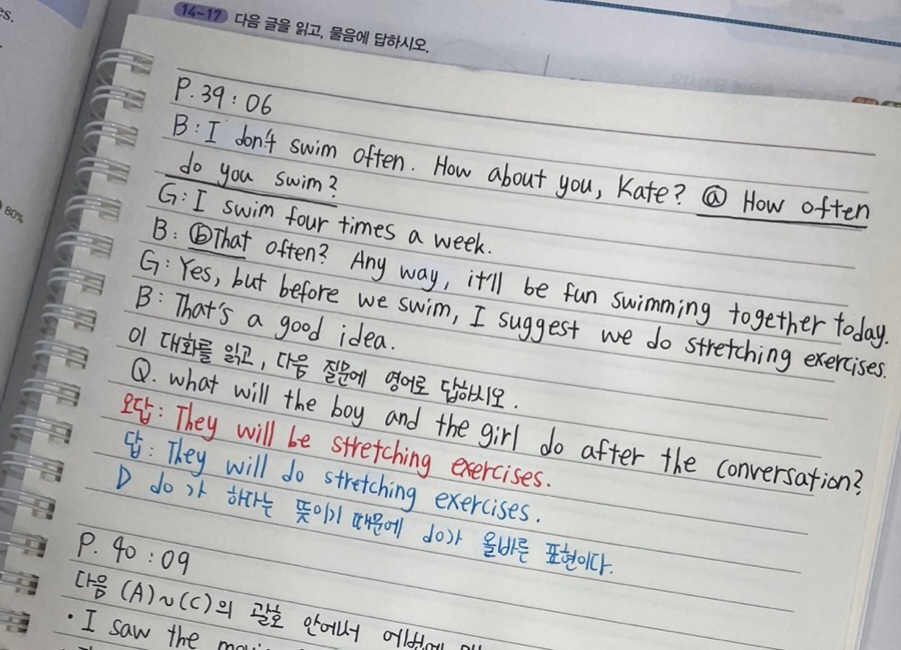 es.
14~17 다음 글을 읽고, 물음에 답하시오.
60%
P.39 : 06
B : I don't swim often. How about you, Kate? ⓐ How often
do you swim?
G : I swim four times a week.
B : ⓑ That often? Any way, it'll be fun swimming together today.
G : Yes, but before we swim, I suggest we do stretching exercises.
B : That's a good idea.
이 대화를 읽고, 다음 질문에 영어로 답하시오.
Q. what will the boy and the girl do after the conversation?
오답 : They will be stretching exercises.
답 : They will do stretching exercises.
▷ do가 하다는 뜻이기 때문에 do가 올바른 표현이다.
P. 40 : 09
다음 (A)~(C)의 괄호 안에서
· I saw the